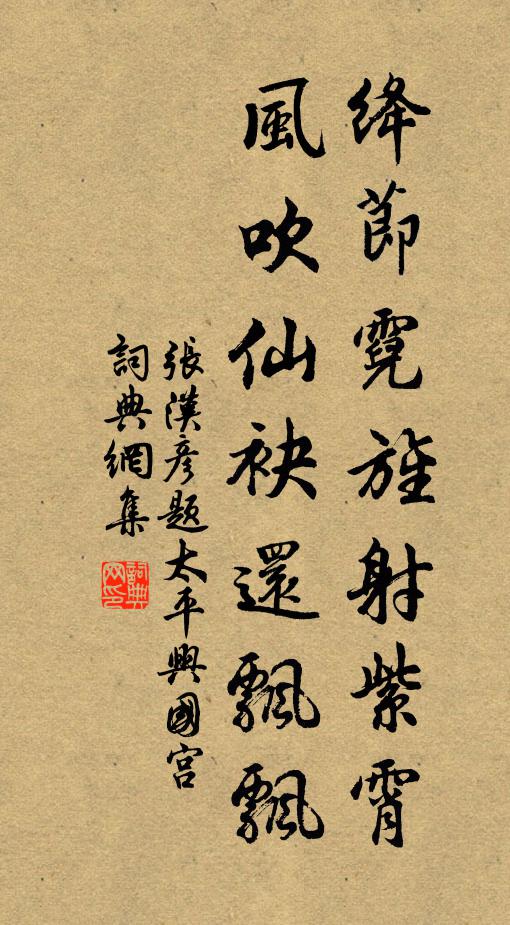 絳節霓旌射紫霄
風吹仙袂還飄飄
張漢彥題太平興國宮
詞典網集
詞典网印